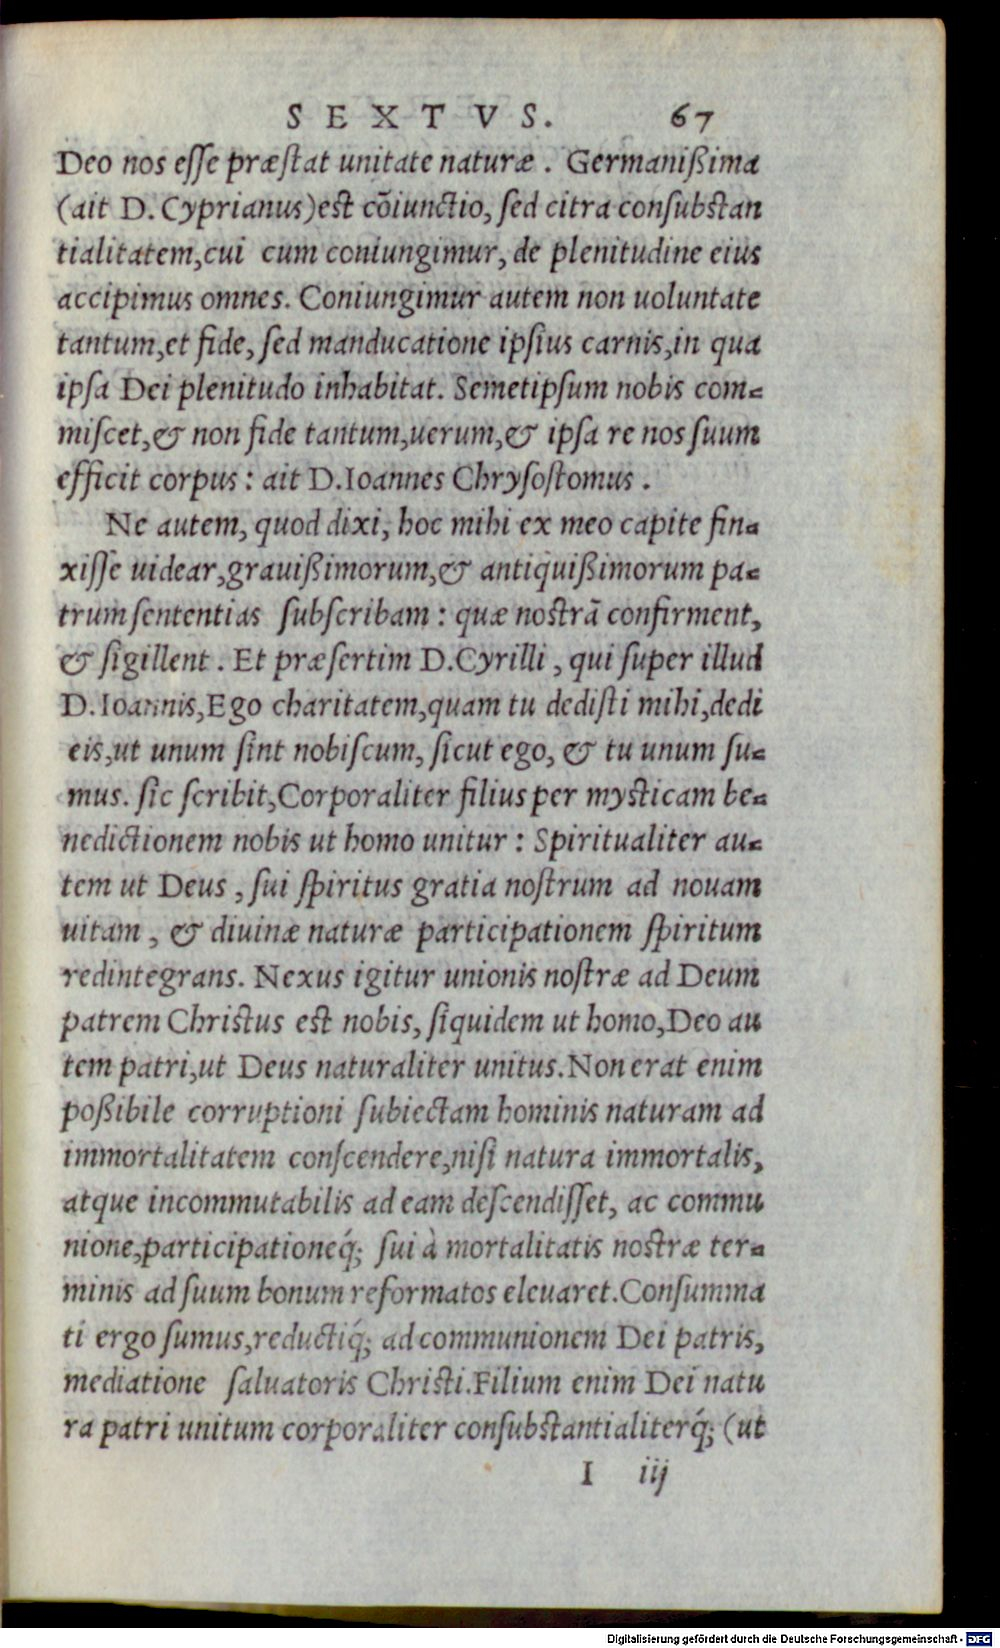 SEXTVS. 67
Deo nos eſſe præſtat unitate naturæ. Germanißima
(ait D. Cyprianus) est cōiunctio, ſed citra conſubstan
tialitatem, cui cum coniungimur, de plenitudine eius
accipimus omnes. Coniungimur autem non uoluntate
tantum, et fide, ſed manducatione ipſius carnis, in qua
ipſa Dei plenitudo inhabitat. Semetipſum nobis com-
miſcet, & non fide tantum, uerum, & ipſa re nos ſuum
efficit corpus: ait D. Ioannes Chryſoſtomus.
Ne autem, quod dixi, hoc mihi ex meo capite fin-
xiſſe uidear, grauißimorum, & antiquißimorum pa-
trum ſententias ſubſcribam: quæ nostrā confirment,
& ſigillent. Et præſertim D. Cyrilli, qui ſuper illud
D. Ioannis, Ego charitatem, quam tu dediſti mihi, dedi
eis, ut unum ſint nobiſcum, ſicut ego, & tu unum ſu-
mus. ſic ſcribit, Corporaliter filius per mysticam be-
nedictionem nobis ut homo unitur: Spiritualiter au-
tem ut Deus, ſui ſpiritus gratia noſtrum ad nouam
uitam, & diuinæ naturæ participationem ſpiritum
redintegrans. Nexus igitur unionis noſtræ ad Deum
patrem Christus est nobis, ſiquidem ut homo, Deo au
tem patri, ut Deus naturaliter unitus. Non erat enim
poßibile corruptioni ſubiectam hominis naturam ad
immortalitatem conſcendere, niſi natura immortalis,
atque incommutabilis ad eam deſcendiſſet, ac commu
nione, participationeq́; ſui à mortalitatis nostræ ter-
minis ad ſuum bonum reformatos eleuaret. Conſumma
ti ergo ſumus, reductiq́; ad communionem Dei patris,
mediatione ſaluatoris Christi. Filium enim Dei natu
ra patri unitum corporaliter conſubstantialiterq́; (ut
I iij
Digitalisierung gefördert durch die Deutsche Forschungsgemeinschaft - DFG